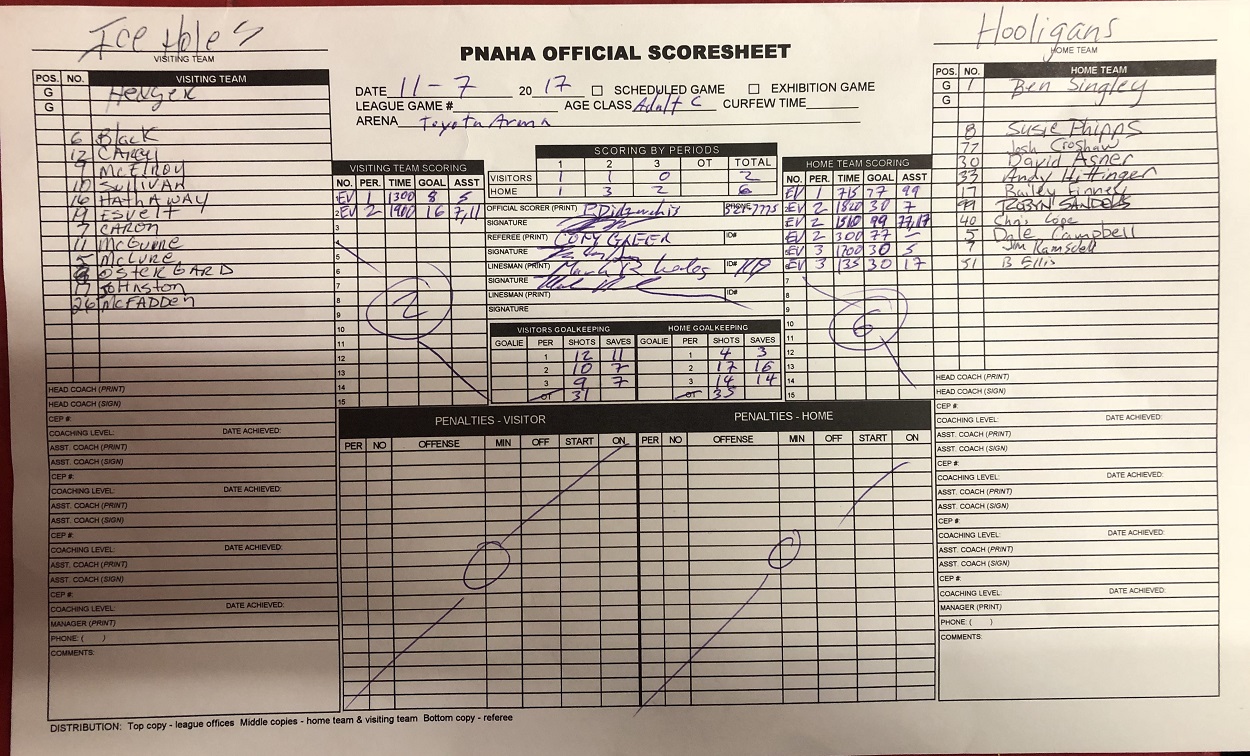 Ice Holes
VISITING TEAM
PNAHA OFFICIAL SCORESHEET
Hooligans
HOME TEAM
DATE 11-7 2017 SCHEDULED GAME EXHIBITION GAME
LEAGUE GAME # AGE CLASS Adult C CURFEW TIME
ARENA Toyota Arena
POS. NO. VISITING TEAM
G Henger
G
6 Black
12 CAREY
9 McElroy
10 SULLIVAN
16 HATHAWAY
19 ESVELT
7 CARON
11 McGuire
5 McClure
8 OSTERGARD
17 Johnston
26 McFADDEN
HEAD COACH (PRINT)
HEAD COACH (SIGN)
CEP #:
COACHING LEVEL: DATE ACHIEVED:
ASST. COACH (PRINT)
ASST. COACH (SIGN)
CEP #:
COACHING LEVEL: DATE ACHIEVED:
ASST. COACH (PRINT)
ASST. COACH (SIGN)
CEP #:
COACHING LEVEL: DATE ACHIEVED:
ASST. COACH (PRINT)
ASST. COACH (SIGN)
CEP #:
COACHING LEVEL: DATE ACHIEVED:
MANAGER (PRINT)
PHONE: ( )
COMMENTS:
VISITING TEAM SCORING
NO. PER. TIME GOAL ASST
1 EV 1 1300 8 5
2 EV 2 1900 16 7,11
3
4
5
6
7
8
9
10
11
12
13
14
15
2
SCORING BY PERIODS
1 2 3 OT TOTAL
VISITORS 1 1 0 2
HOME 1 3 2 6
OFFICIAL SCORER (PRINT) PHONE 521-7775
SIGNATURE
REFEREE (PRINT) CORY GREEN ID#
SIGNATURE
LINESMAN (PRINT) Mark R ID#
SIGNATURE
LINESMAN (PRINT) ID#
SIGNATURE
VISITORS GOALKEEPING HOME GOALKEEPING
GOALIE PER SHOTS SAVES GOALIE PER SHOTS SAVES
1 12 11 1 4 3
2 10 7 2 17 16
3 9 7 3 14 14
OT 31 OT 35
HOME TEAM SCORING
NO. PER. TIME GOAL ASST
EV 1 715 77 99
EV 2 30 7
EV 2 1510 99 77,17
EV 2 300 77 -
EV 3 1700 30 5
EV 3 135 30 17
7
8
9
10
11
12
13
14
15
6
POS. NO. HOME TEAM
G 1 Ben Singley
G
8 Susie Phipps
77 Josh Croshaw
30 David Asner
33 Andy Hittinger
17 Bailey Finney
99 ROBYN SANDERS
40 Chris Cope
5 Dale Campbell
7 Jim Ramsdell
51 B Ellis
HEAD COACH (PRINT)
HEAD COACH (SIGN)
CEP #:
COACHING LEVEL: DATE ACHIEVED:
ASST. COACH (PRINT)
ASST. COACH (SIGN)
CEP #:
COACHING LEVEL: DATE ACHIEVED:
ASST. COACH (PRINT)
ASST. COACH (SIGN)
CEP #:
COACHING LEVEL: DATE ACHIEVED:
ASST. COACH (PRINT)
ASST. COACH (SIGN)
CEP #:
COACHING LEVEL: DATE ACHIEVED:
MANAGER (PRINT)
PHONE: ( )
COMMENTS:
PENALTIES - VISITOR PENALTIES - HOME
PER NO OFFENSE MIN OFF START ON PER NO OFFENSE MIN OFF START ON
0 0
DISTRIBUTION: Top copy - league offices Middle copies - home team & visiting team Bottom copy - referee